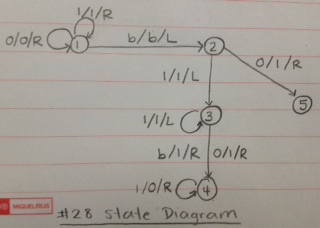 1/1/R
0/0/R
1
b/b/L
2
0/1/R
1/1/L
5
1/1/L
3
b/1/R 0/1/R
1/0/R
4
MIQUELRIUS
#28 State Diagram